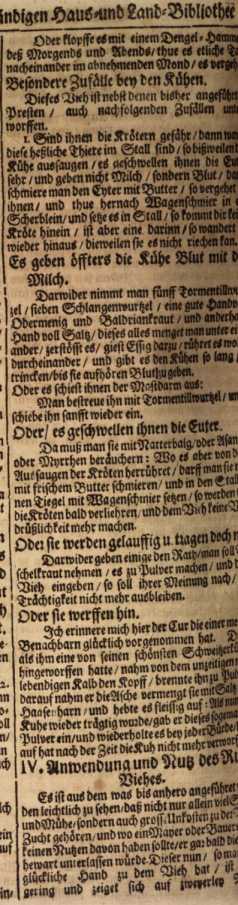 ndigen Haus= und Land=Bibliothec
Oder klopffe es mit einem Dengel=Hamme
deß Morgends und Abends/ thue es etliche T
nacheinander im abnehmenden Mond/ es vergeh
Besondere Zufälle bey den Kühen.
Dieses Vieh ist nebst denen bisher angeführ
Presten / auch nachfolgenden Zufällen unt
worffen.
1. Sind ihnen die Krötern gefähr/ dann wan
diese heßliche Thiere im Stall sind/ so bißweilen
Kühe aussaugen/ es geschwellen ihnen die Eu
sehr/ und geben nicht Milch/ sondern Blut/ da
schmiere man den Eyter mit Butter / so vergehet
ihnen/ und thue hernach Wagenschmier in
Scherblein/ und setze es in Stall / so kommt die kei
Kröte hinein / ist aber eine darinn/ so wandert
wieder hinaus/ dieweilen sie es nicht riechen kan.
Es geben öffters die Kühe Blut mit d
Milch.
Darwider nimmt man fünff Tormentillw
zel / sieben Schlangenwurtzel/ eine gute Handv
Obermenig und Baldriankraut / und anderha
Hand voll Saltz/ dieses alles menget man unter ei
ander/ zerstößt es/ giest Essig darzu/ rühret es wo
durcheinander/ und gibt es den Kühen so lang
trincken/ biß sie aufhören Blut zugeben.
Oder es schiest ihnen der Mastdarm aus:
Man bestreue ihn mit Tormentillwurtzel/ un
schiebe ihn sanfft wieder ein.
Oder/ es geschwellen ihnen die Euter.
Da muß man sie mit Natterbalg/ oder Asan
oder Myrrhen beräuchern: Wo es aber von d
Aussaugen der Kröten herrühret/ darff man sie n
mit frischem Butter schmieren/ und in den Stal
nen Tiegel mit Wagenschmier setzen/ so werden
die Kröten bald verliehren/ und dem Vieh keine V
drüßlichkeit mehr machen.
Oder sie werden gelauffig u. tragen doch n
Darwider geben einige den Rath/ man soll
schelkraut nehmen / es zu Pulver machen / und d
Vieh eingeben / so soll ihrer Meinung nach/
Trächtigkeit nicht mehr ausbleiben.
Oder sie werffen hin.
Ich erinnere mich hier der Cur die einer me
Benachbarn glücklich vorgenommen hat. D
als ihm eine von seinen schönsten Schweitzerk
hingeworffen hatte/ nahm von dem unzeitigen
lebendigen Kalb den Kopff / brennte ihn zu Pu
darauf nahm er die Asche vermengt sie mit Saltz
Haaserkarn / und hebte es fleissig auf: Als nun
Kuhe wieder trägtig wurde/ gab er dieses sogema
Pulver ein/ und wiederholte es bey jeder Bürde/
auf hat nach der Zeit die Kuh nicht mehr verworf
IV. Anwendung und Nutz des Ri
Viehes.
Es ist aus dem was bis anhero angeführet
den leichtlich zu sehen/ daß nicht nur allein viel S
und Mühe/ sondern auch gross. Unkosten zu der
Zucht gehören/ und wo ein Mayer oder Bauer
keinen Nutzen davon haben sollte/ er gar bald die
bewart unterlassen würde. Dieser nun / so ma
glückliche Hand zu dem Vieh hat / ist
gering und zeiget sich auf zweyerley